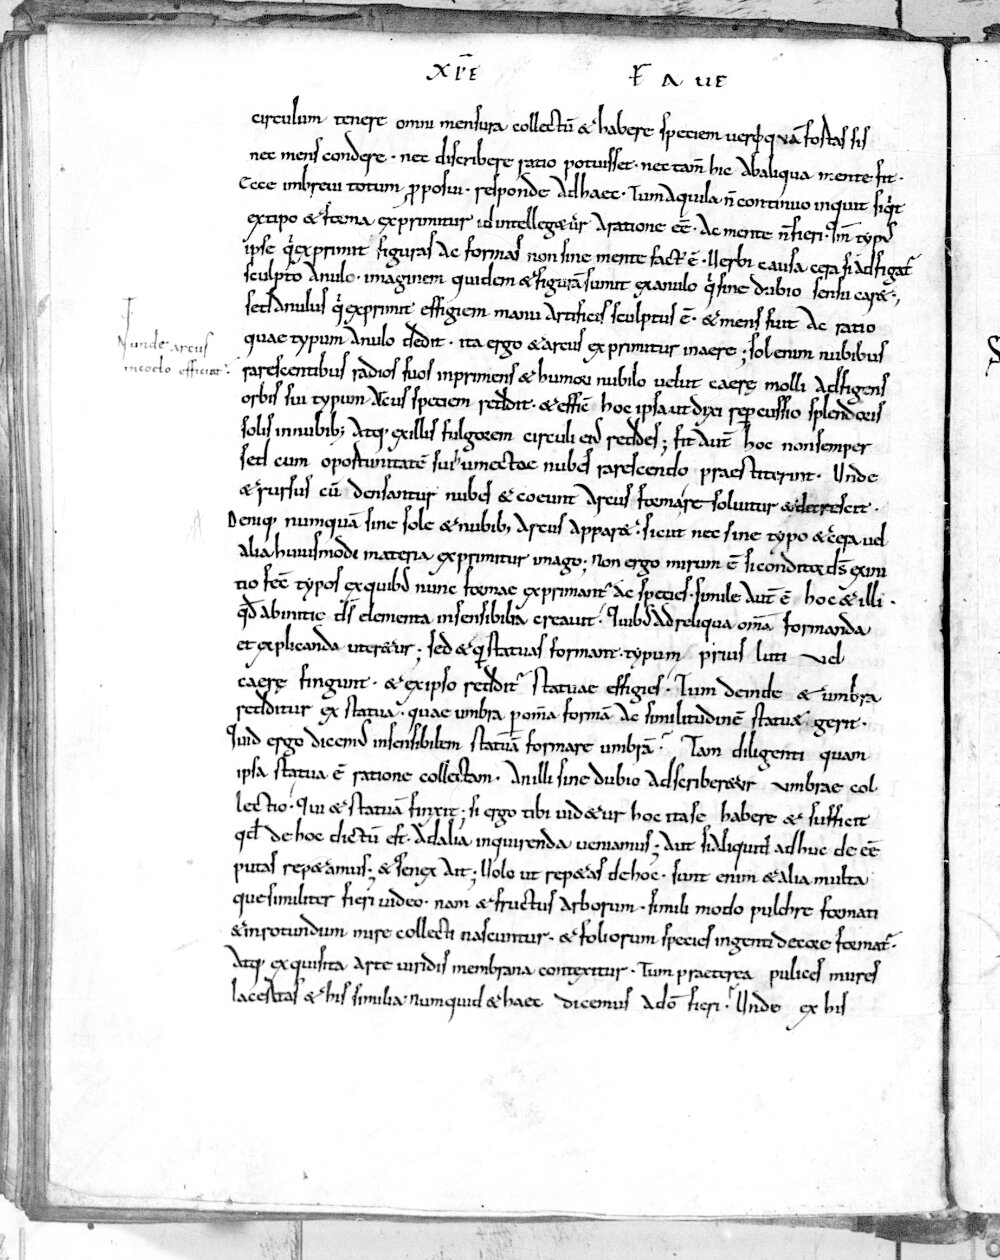 XP̅E FAUE
circulum tenere omni mensura collectū & habere speciem
nec mens condere · nec discribere ratio potuisset · nec tam̄ hic ab aliqua mente fit ·
Ecce inbrevi totum p̱posui · responde adhaec · Tum aquila n̄ continuo inquit
ex tipo & forma exprimitur id intelleg&ur aratione eē · Ac mente n̄ fieri ·
ipse q̇ exprimit figuras ac formas non sine mente fact' ē · Uerbi causa cera si adfigat᷑
sculpto anulo · imaginem quidem & figurā sumit ex anulo q̇ sine dubio sensu car& ·,
sed anulus q̇ exprimit effigiem manu artificis sculptus ē · & mens fuit ac ratio
quae typum anulo dedit · ita ergo & arcus exprimitur inaere ; sol enim nubibus
unde arcus
incoelo efficiat᷑ ·
rarescentibus radios suos inprimens & humori nubilo velut caerę molli adfigens
orbis sui typum arcus speciem reddit · & effic̄ hoc ipsa ut dixi repercussio splendoris
solis innubib; atq; exillis fulgorem circuli ei reddes ; fit aut̄ hoc nonsemper
sed cum oportunitatē sui umectae nubes rarescendo praestiterint · Unde
& rursus cū densantur nubes & coeunt arcus formare soluitur & decrescit ·
Deniq; numquā sine sole & nubib; arcus appar& · sicut nec sine typo & cera vel
alia huiusmodi materia exprimitur imago ; non ergo mirum ē si conditor d̄s ex ini
tio fec̄ typos exquib; nunc formae exprimant᷑ ac species · simile aut̄ ē hoc & illi ·
qđ abinitio d̄s elementa insensibilia creavit · quib; ad reliqua om̄a formanda
et explicanda uter&ur ; sed & q̇ statuas formant · typum prius luti vel
caerę fingunt · & exipso reddit᷑ statuae effigies · Tum deinde & umbra
redditur ex statua · quae umbra p̱ om̄a formā ac similitudinē statuae gerit ·
Quid ergo dicemus insensibilem statuā formare umbrā · Tam diligenti quam
ipsa statua ē ratione collectam · an illi sine dubio adscriber&ur umbrae col
lectio · qui & statuā finxit ; si ergo tibi vid&ur hoc ita se habere & sufficit
qđ de hoc dictū est · ad alia inquirenda veniamus ; Aut si aliquid adhuc de eē
putas rep&amus ; & senex ait ; Volo ut rep&as de hoc · sunt enim & alia multa
que similiter fieri video · nam & fructus arborum · simili modo pulchre formati
& inrotundum mire collecti nascuntur · & foliorum species ingenti decore format᷑ ·
Atq; exquisita arte viridis membrana contexitur · Tum praeterea pulices mures
lacertas & his similia numquid & haec dicemus adō fieri · Unde ex his